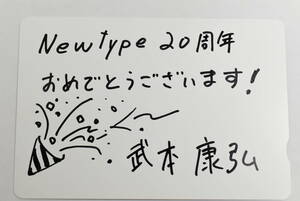 Newtype 20周年
おめでとうございます!
武本 康弘